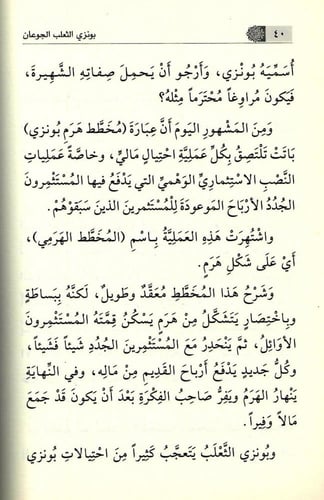 ٤٠
بونزي الثعلب الجوعان
أُسَمِّيَهُ بُونْزِي، وَأَرْجُو أَنْ يَحمِلَ صِفاتِهِ الشَّهِيرَةَ،
فَيَكونَ مُراوِغاً مُحْتَرَماً مِثْلَهُ؟
وَمِنَ المَشْهورِ اليَومَ أَنَّ عِبارَةَ (مُخَطَّط هَرَمِ بُونزي)
باتَتْ تَلْتَصِقُ بِكُلِّ عَمَلِيَّةِ احْتِيالٍ مالِيٍّ، وخاصَّةً عَمليَاتِ
النَّصْبِ الاسْتِثماريِّ الوَهْمِيِّ التي يَدْفَعُ فيها المُسْتَثْمِرونَ
الجُدُدُ الأَرْباحَ المَوعودَةَ لِلْمُسْتَثمرينَ الذينَ سَبَقُوْهُمْ.
واشْتُهِرَتْ هَذِهِ العَمَلِيَّةُ بِاسْمِ (المُخَطَّطِ الهَرَمِي)،
أَيْ عَلَى شَكْلِ هَرَمٍ.
وَشَرْحُ هَذا المُخَطَّطِ مُعَقَّدٌ وطَويلٌ، لَكنَّهُ بِبَساطَةٍ
وباخْتِصارٍ يَتَشَكَّلُ مِنْ هَرَمٍ يَسْكُنُ قِمَّتَهُ المُسْتَثْمِرونَ
الأَوائِلُ، ثمَّ يَنْحَدِرُ مَعَ المُسْتَثْمِرينَ الجُدُدِ شَيئاً فَشَيئاً،
وكُلُّ جَديدٍ يَدْفَعُ أَرْباحَ القَديمِ مِنْ مالِهِ، وفي النِّهايَةِ
يَنْهارُ الهَرَمُ ويَفِرُّ صاحِبُ الفِكْرَةِ بَعْدَ أَنْ يَكونَ قَدْ جَمَعَ
مَالاً وَفِيراً.
وبُونزي الثَّعْلَبُ يَتَعجَّبُ كَثيراً مِنَ احْتِيالاتِ بُونزي